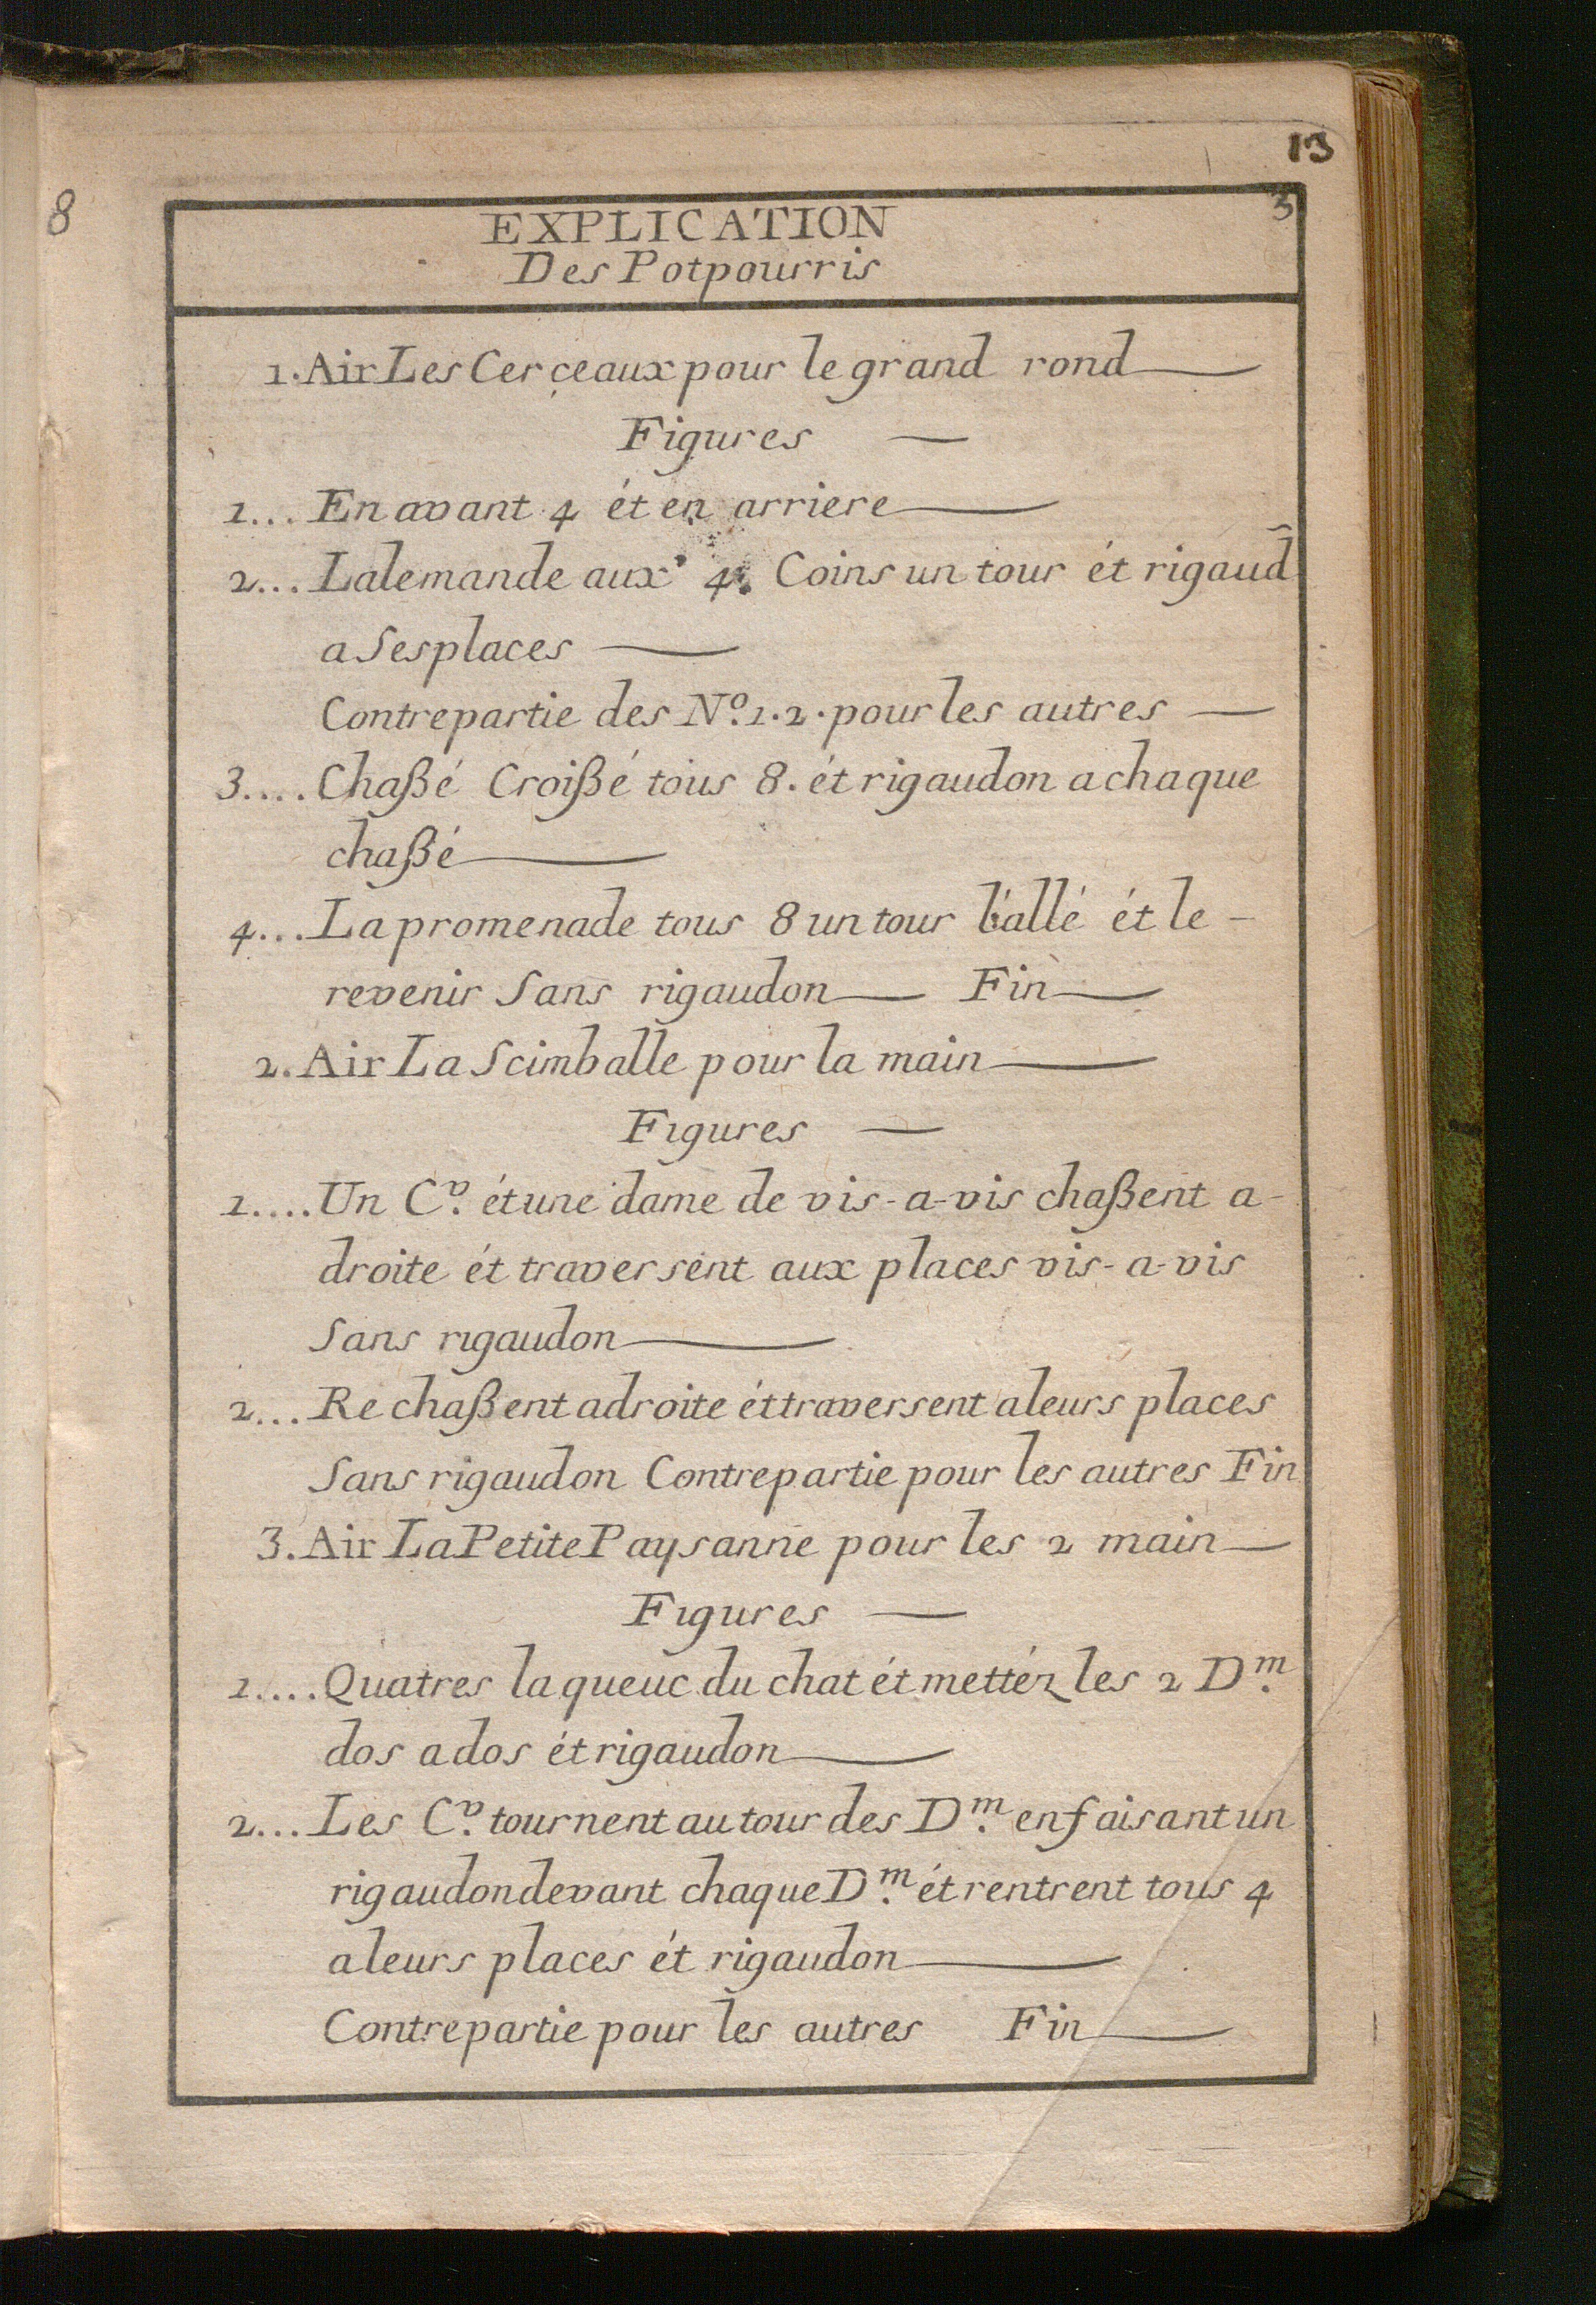 13
8
3
EXPLICATION
Des Potpourris
1. Air Les Cerçeaux pour le grand rond
Figures
1... En avant 4 ét en arriere
2... Lalemande aux 4. Coins un tour ét rigaud̃
a Ses places
Contrepartie des Nº. 1. 2. pour les autres
3.... Chaßé Croißé tous 8. ét rigaudon a chaque
chaßé
4... La promenade tous 8 un tour l'allé ét le -
revenir Sans rigaudon Fin
2. Air La Scimballe pour la main
Figures
1.... Un Cᵛ. ét une dame de vis-a-vis chaßent a-
droite ét traversent aux places vis-a-vis
Sans rigaudon
2... Re chaßent adroite ét traversent a leurs places
Sans rigaudon Contrepartie pour les autres Fin
3. Air La Petite Paysanne pour les 2 main
Figures
1.... Quatres la queue du chat ét mettéz les 2 Dᵐ.
dos a dos ét rigaudon
2... Les Cᵛ. tournent autour des Dᵐ. en faisant un
rigaudon devant chaque Dᵐ. ét rentrent tous 4
a leurs places ét rigaudon
Contrepartie pour les autres Fin